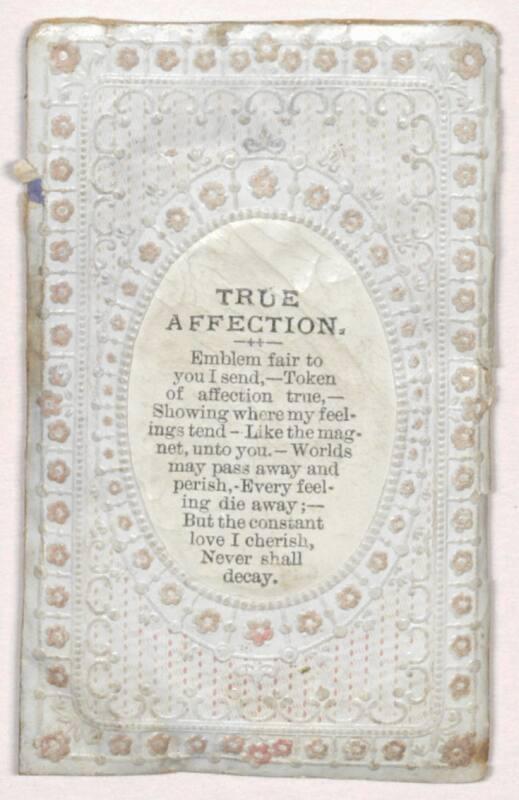 TRUE
AFFECTION.
Emblem fair to
you I send,—Token
of affection true,—
Showing where my feel-
ings tend – Like the mag-
net, unto you. – Worlds
may pass away and
perish,-Every feel-
ing die away ;—
But the constant
love I cherish,
Never shall
decay.